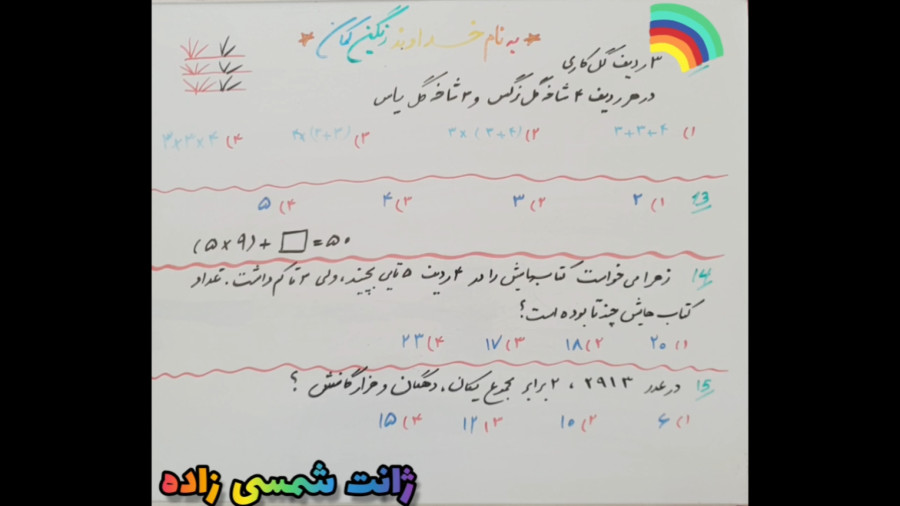 به نام خداوند رنگین کمان
۳ ردیف گل کاری
در هر ردیف ۴ شاخه گل نرگس و ۳ شاخه گل یاس
۱) ۳+۳+۴ ۲) ۳×(۳+۴) ۳) ۴×(۳+۳) ۴) ۳×۳×۴
۱۳ ۱) ۲ ۲) ۳ ۳) ۴ ۴) ۵
(۵×۹)+□=۵۰
۱۴ زهرا می خواست کتاب هایش را در ۴ ردیف ۵ تایی بچیند، ولی ۳ تا کم داشت. تعداد
کتاب هایش چند تا بوده است؟
۱) ۲۰ ۲) ۱۸ ۳) ۱۷ ۴) ۲۳
۱۵ در عدد ۲۹۱۳ ، ۲ برابر مجموع یکان، دهگان و هزارگانش ؟
۱) ۶ ۲) ۱۰ ۳) ۱۲ ۴) ۱۵
ژانت شمسی زاده